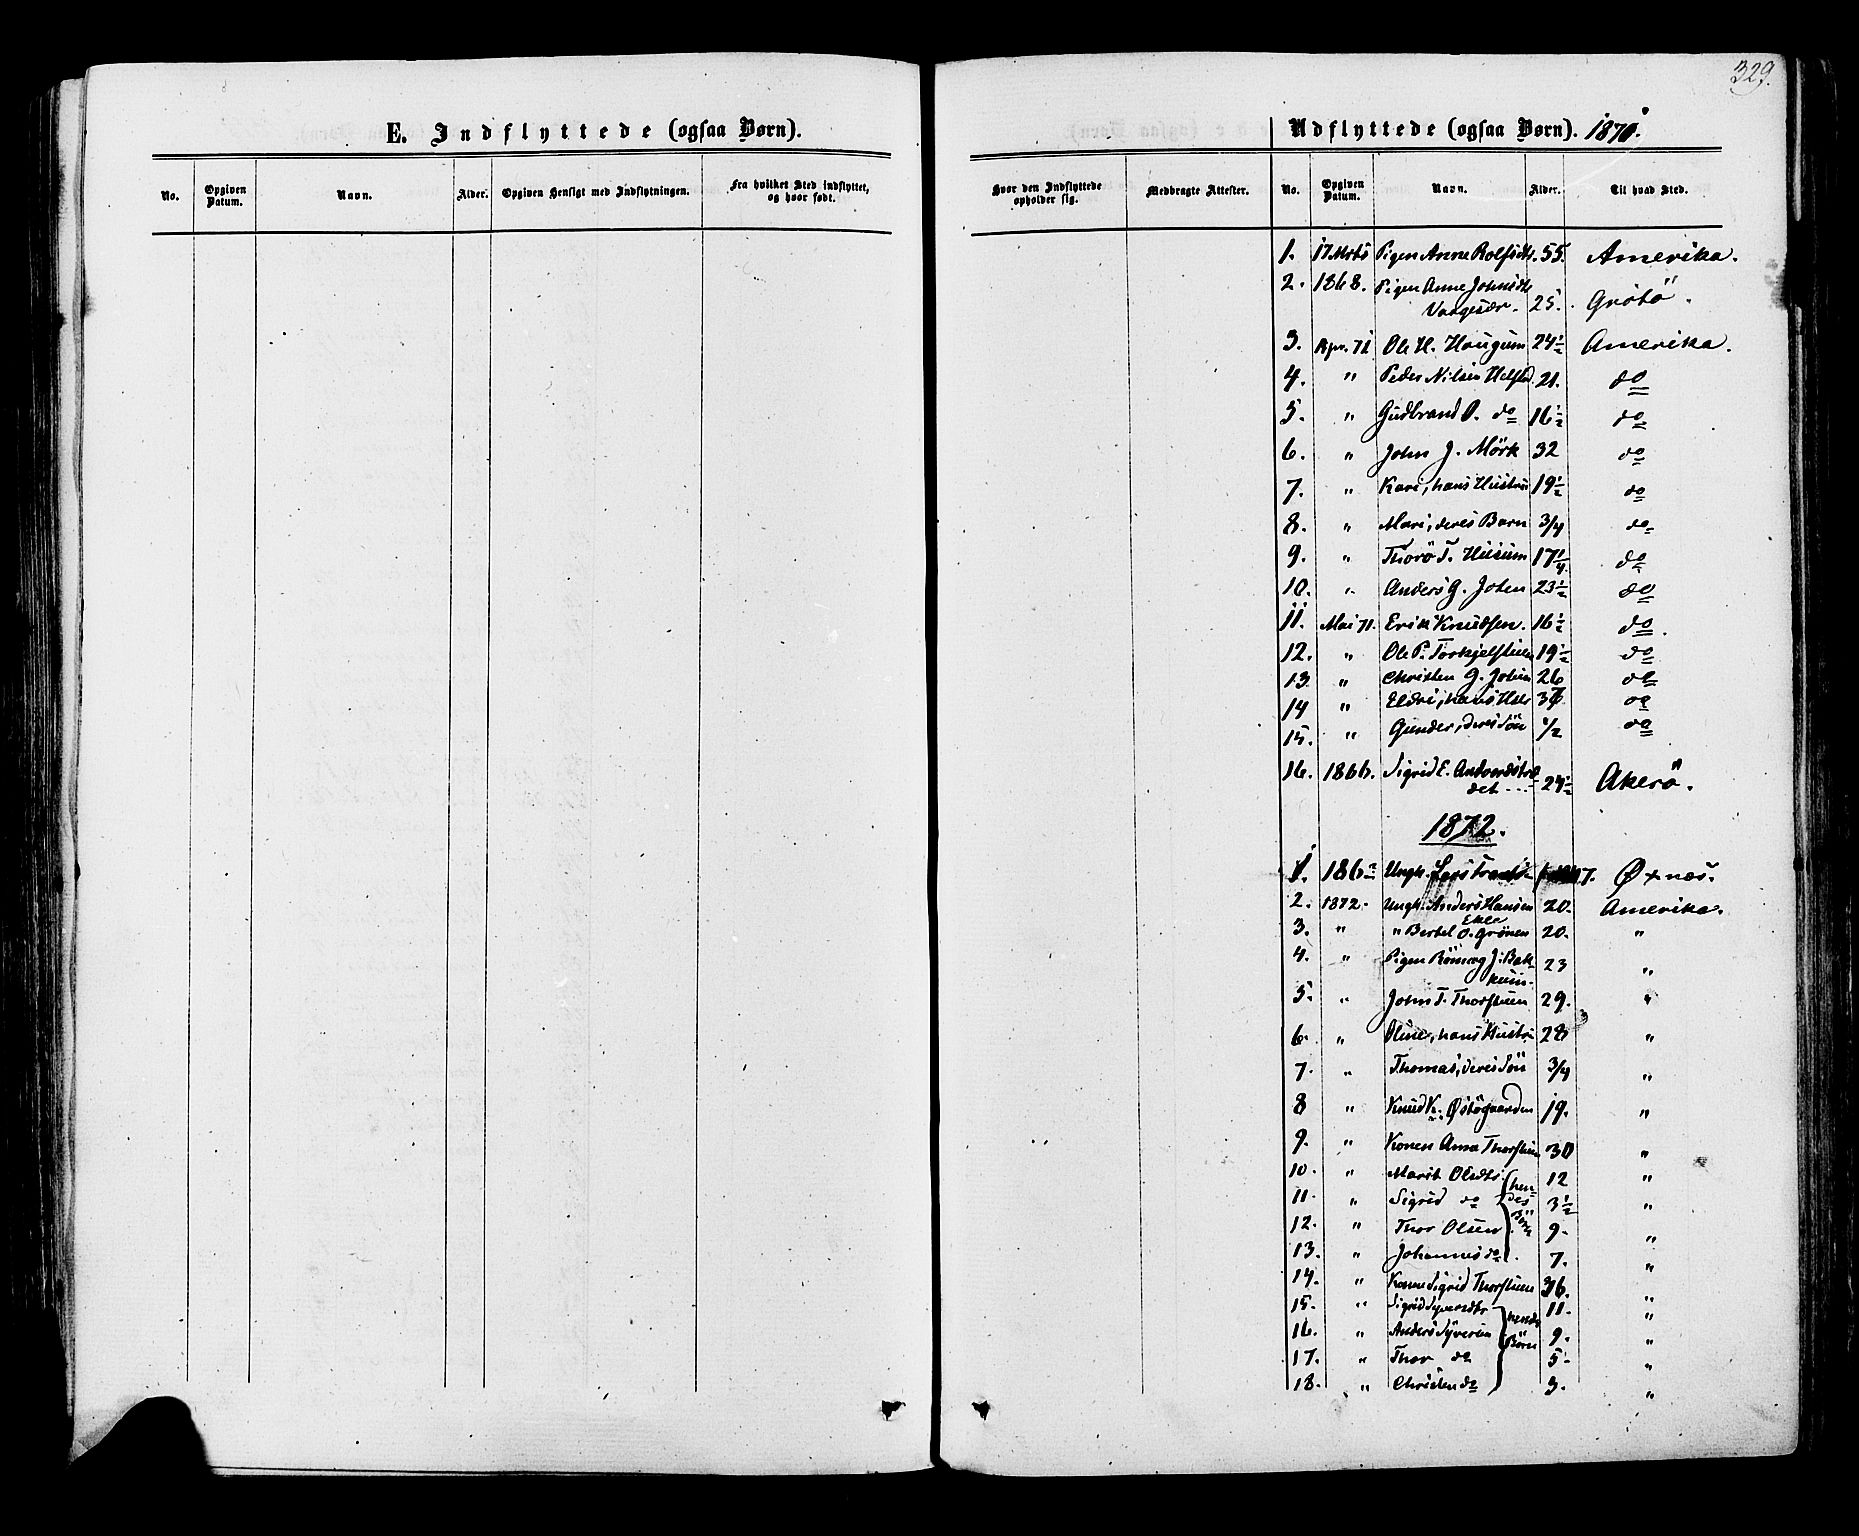 329.
E. Indflyttede (ogsaa Børn).
Udflyttede (ogsaa Børn). 1871.
No. Opgiven Datum. Navn. Alder. Opgiven Hensigt med Indflytningen. Fra hvilket Sted indflyttet, og hvor født.
Hvor den Indflyttede opholder sig. Medbragte Attester. No. Opgiven Datum. Navn. Alder. Til hvad Sted.
1. 17 Mrts Pigen Anne Rolfsdtr. 55. Amerika.
2. 1868. Pigen Anne Johnsdtr
25. Grötö.
3. Apr. 71 Ole H. Haugum 24½ Amerika.
4. " Peder Nilsen 21. do
5. " Gudbrand O. do 16½ do
6. " John J. Mörk 32 do
7. " Kari, hans Hustru 19½ do
8. " Mari, deres Barn 3/4 do
9. " Thorö T. Husum 17¼ do
10. " Anders G. Joten 23½ do
11. Mai 71. Erik Knudsen. 16½ do.
12. " Ole P. Torkjelstuen 19½ do
13 " Christen G. Joten 26 do
14 " Eldri, hans Hstr do
15. " Gunder, deres Sön ½ do
16. 1866. Sigrid E.
24½ Akerö.
1872.
1. 186 Ungk. Lars Øxnes.
2. 1872. Ungk. Anders Hansen 20. Amerika.
3. " " Bertel O. Grönen 20. "
4. " Pigen J. Bak- 23 "
kum.
5. " John T. Thorstuen 29. "
6. " Oline, hans Hustru 28 "
7. " Thomas, deres Sön 3/4 "
8 " Knud K. Østögaarden 19. "
9. " Konen Anna Thorstuen 30 "
10. " Marit Olsdtr. hen- 12 "
11. " Sigrid do des 3½ "
12. " Thor Olsen Börn 9. "
13. " Johannes do. 7. "
14. " Konen Sigrid Thorstuen 36. "
15. " Sigrid Syverdtr 11. "
16. " Anders Syversen Börn 9. "
17. " Thor do 5. "
18. " Christen do 3. "